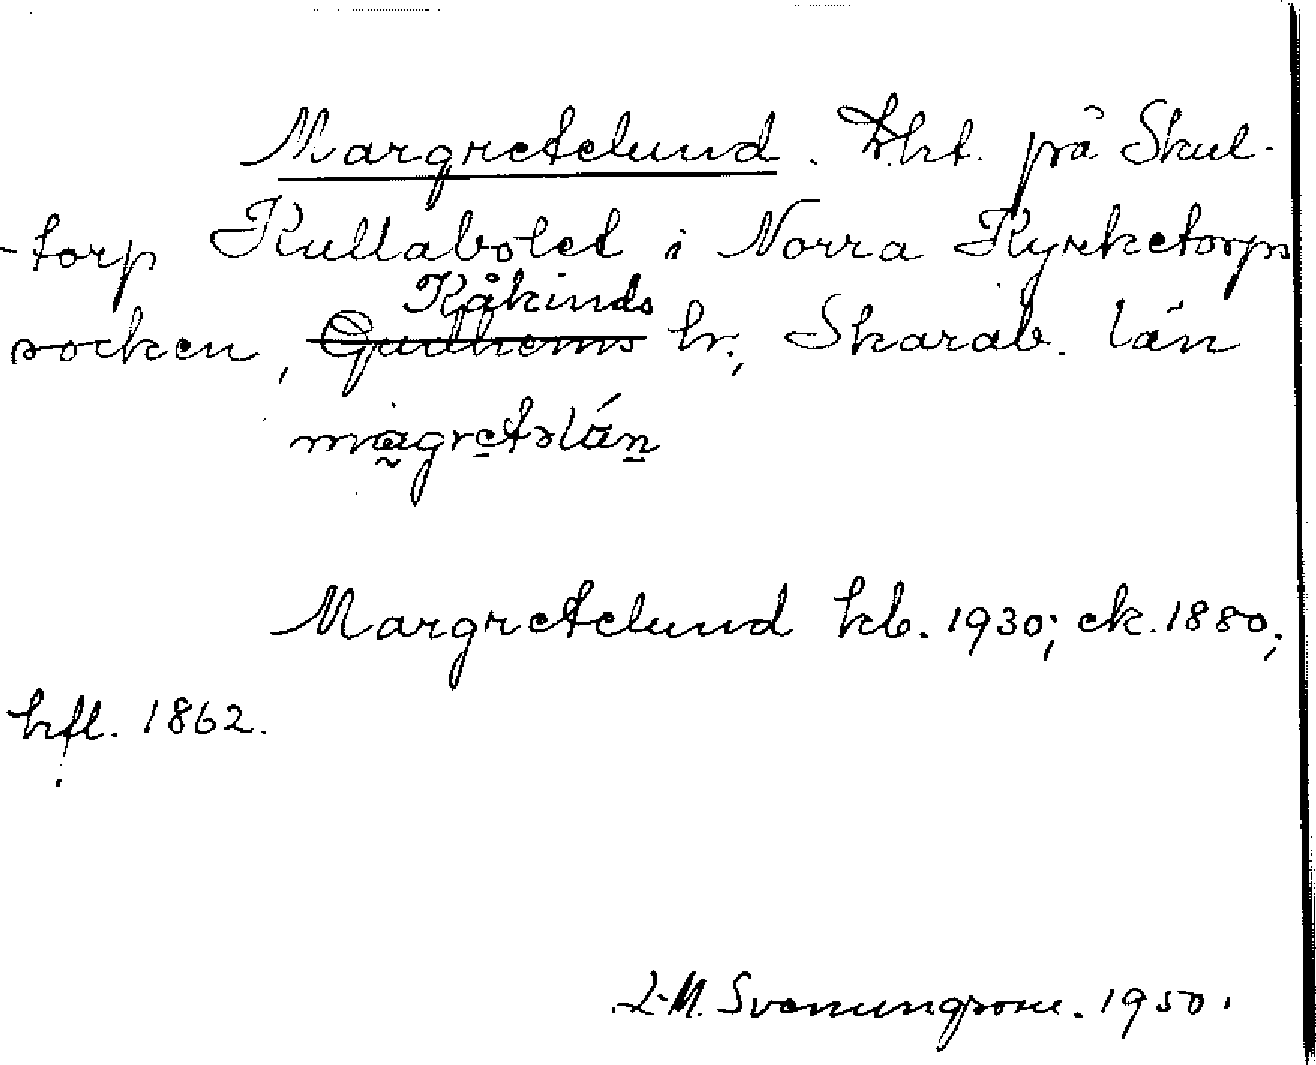 Margretelund. Lht. på Skul-
-torp Kullabolet i Norra Kyrketorps
Kåkinds
socken, Gudhems hr., Skarab. län
magretslán
Margretelund kb. 1930; ek. 1880;
hfl. 1862.
L-M. Svenungsson. 1950.